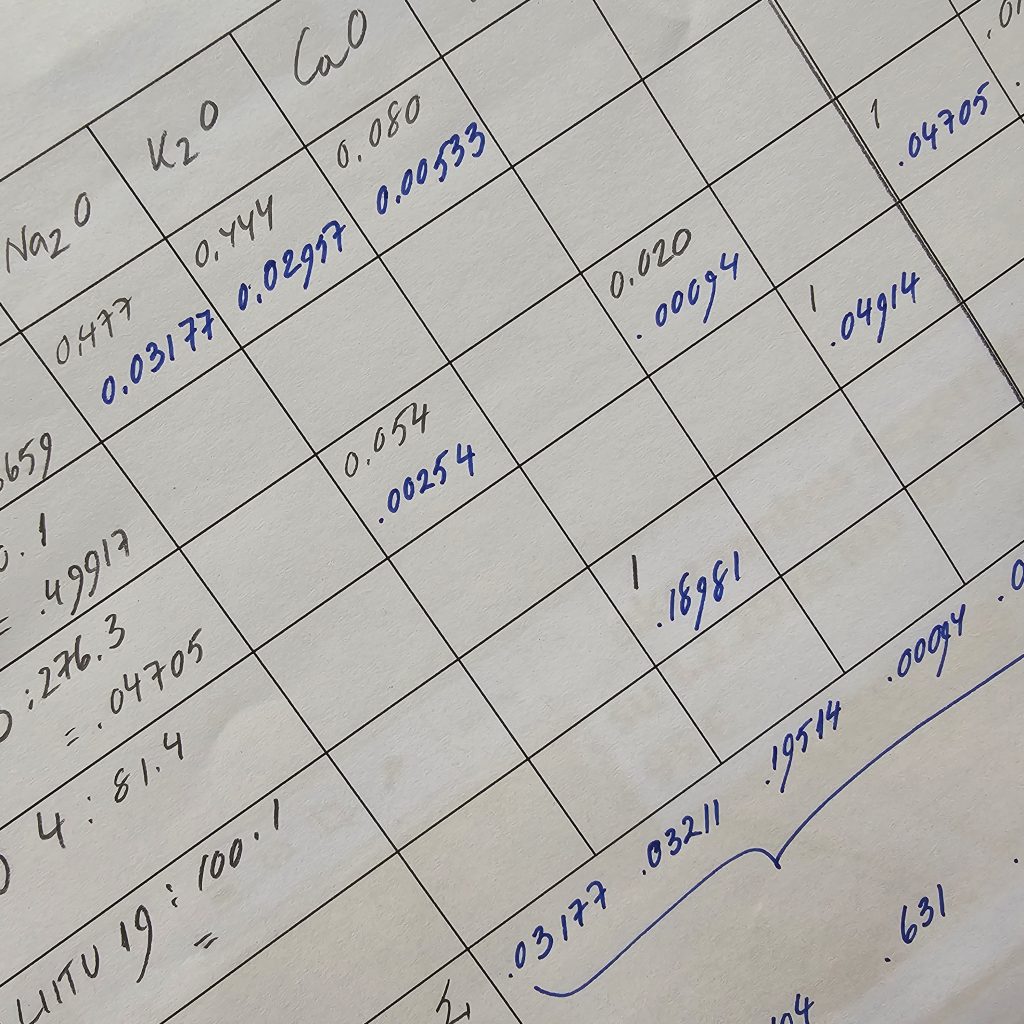 Na2O K2O CaO
0.477 0.444 0.080
0.03177 0.02957 0.00533
1
.04705
0.054 0.020 1
.00254 .00094 .04914
= .49917
:276.3
= .04705
1
.18981
4 : 81.4
: 100.1
=
Σ .03177 .03211 .19514 .00094
.631